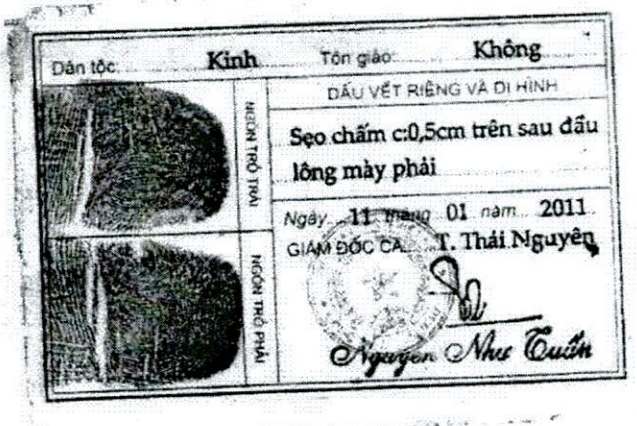 Dân tộc: Kinh Tôn giáo: Không
NGÓN TRỎ TRÁI
NGÓN TRỎ PHẢI
DẤU VẾT RIÊNG VÀ DỊ HÌNH
Sẹo chấm c:0,5cm trên sau đầu
lông mày phải
Ngày 11 tháng 01 năm 2011
GIÁM ĐỐC CA T. Thái Nguyên
Nguyễn Như Tuấn